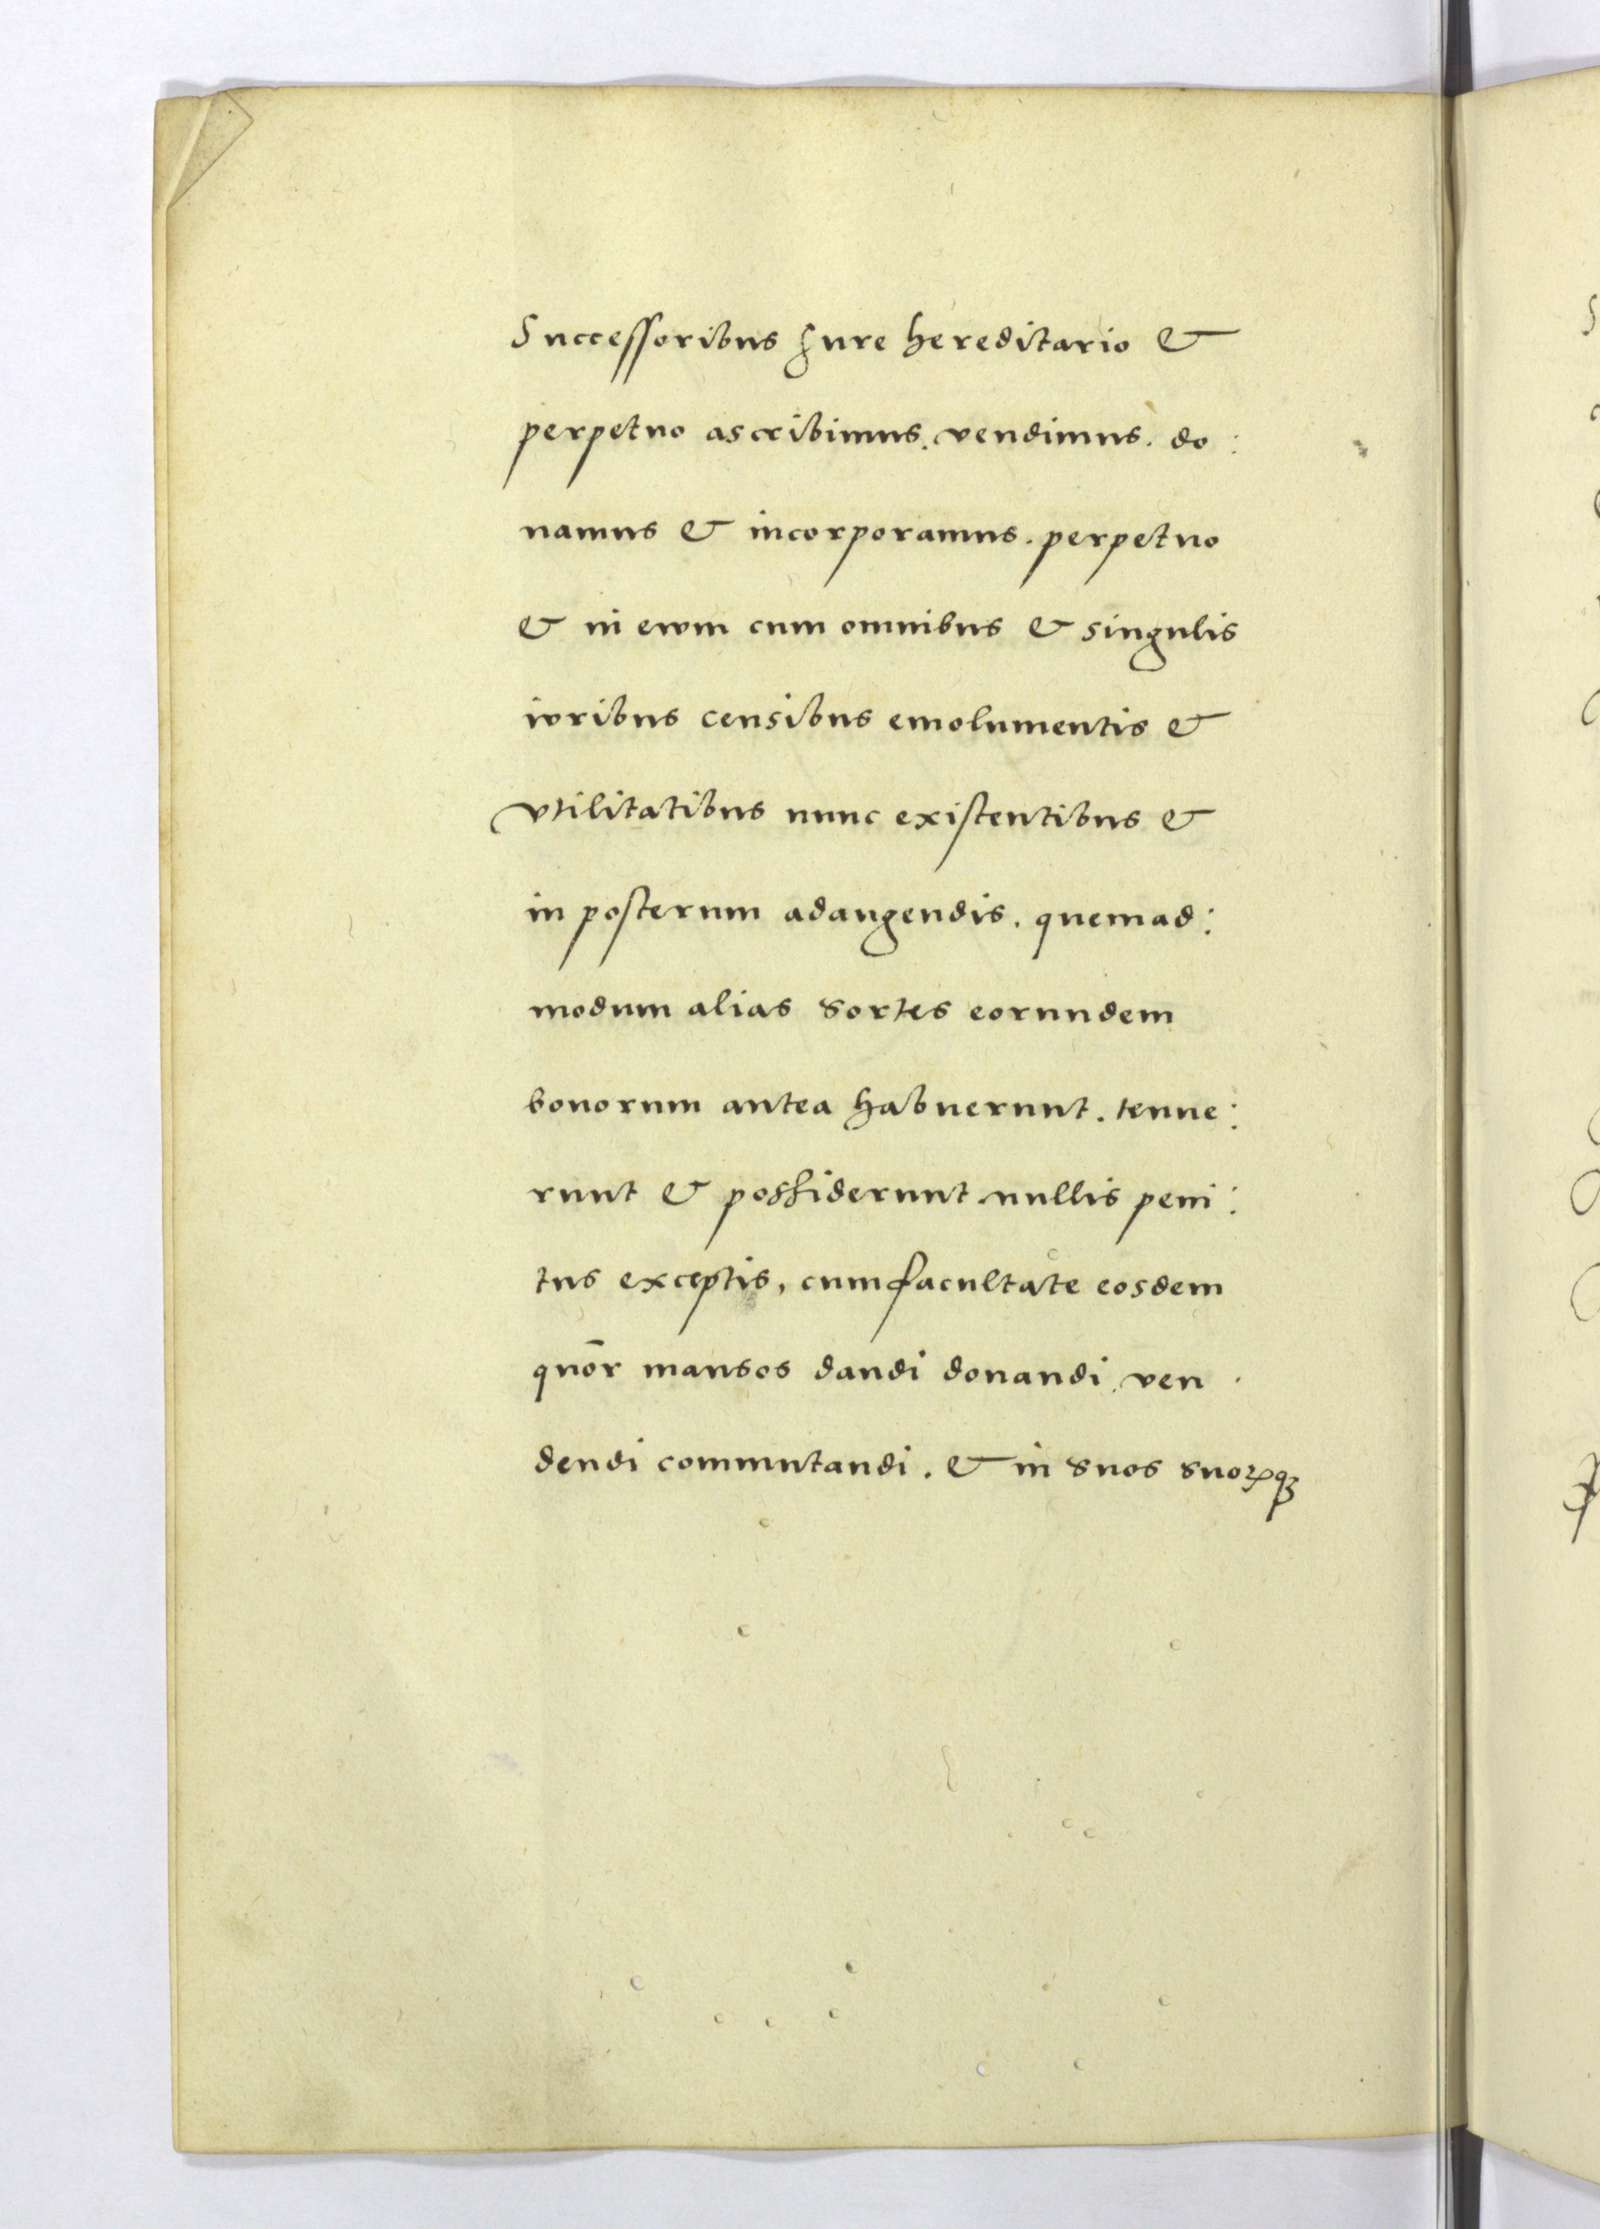 Successoribus Jure hereditario &
perpetuo ascribimus. vendimus. do:
namus & incorporamus. perpetuo
& in ewm cum omnibus & singulis
iuribus censibus emolumentis &
vtilitatibus nunc existentibus &
in posterum adaugendis. quemad:
modum alias sortes eorundem
bonorum antea habuerunt. tenue:
runt & possiderunt nullis peni:
tus exceptis, cum facultate eosdem
quor̄ mansos dandi donandi. ven.
dendi commutandi. & in suos suoꝝqꝫ